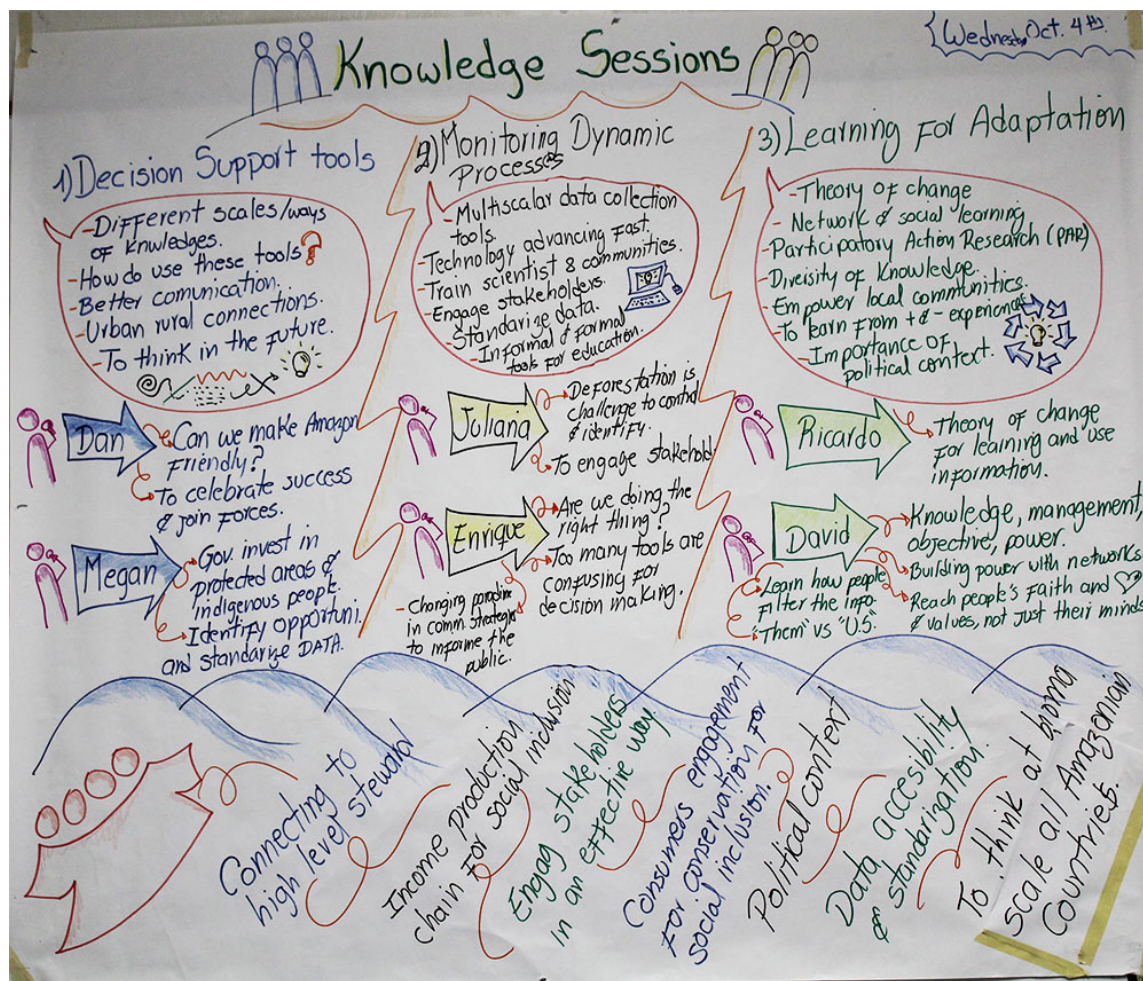 Knowledge Sessions
Wednesday, Oct. 4th.
1) Decision Support tools
-Different scales/ways
of knowledges.
-How do use these tools?
-Better comunication.
-Urban rural connections.
-To think in the future.
Dan
Can we make Amazon
Friendly?
To celebrate success
& join forces.
Megan
Gov. invest in
protected areas &
indigenous people.
Identify opportuni.
and standarize DATA.
2) Monitoring Dynamic
Processes
-Multiscalar data collection
tools.
-Technology advancing fast.
-Train scientist & communities.
-Engage stakeholders.
-Standarize data.
-Informal & formal
tools for education.
Juliana
Deforestation is
challenge to control
& identify.
To engage stakehold.
Enrique
Are we doing the
right thing?
Too many tools are
confusing for
decision making.
-Changing paradim
in comm. strategies
to informe the
public.
3) Learning For Adaptation
-Theory of change
-Network & social learning
-Participatory Action Research (PAR)
-Divcisity of Knowledge.
-Empower local communitics.
-To learn from +&- experiences
-Importance of
political context.
Ricardo
Theory of change
for learning and use
information.
David
Knowledge, management,
objective, power.
Building power with networks
Reach people's Faith and
& values, not just their minds
Learn how people
Filter the info.
"Them" vs "U.S."
Connecting to
high level steward
Income production
chain for social inclusion
Engag stakeholders
in an effective way.
Consumers engagement
For conservation for
social inclusion.
Political context
Data accesibility
& standarization.
To think at bioma
scale all Amazonian
Countries.